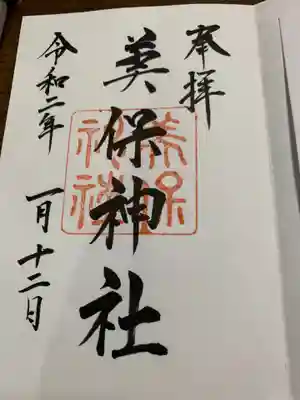 奉拝
美保神社
美保
神社
令和二年
一月十二日